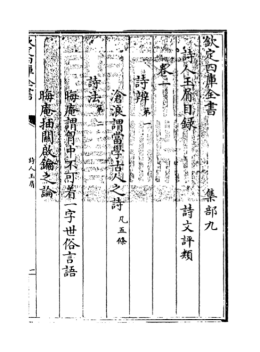 欽定四庫全書
集部九
詩人玉屑目錄
詩文評類
卷一
詩辨第一
滄浪謂當學古人之詩凡五條
詩法第二
晦庵謂胸中不可着一字世俗言語
晦庵抽關啟鑰之論
欽定四庫全書
詩人玉屑
一